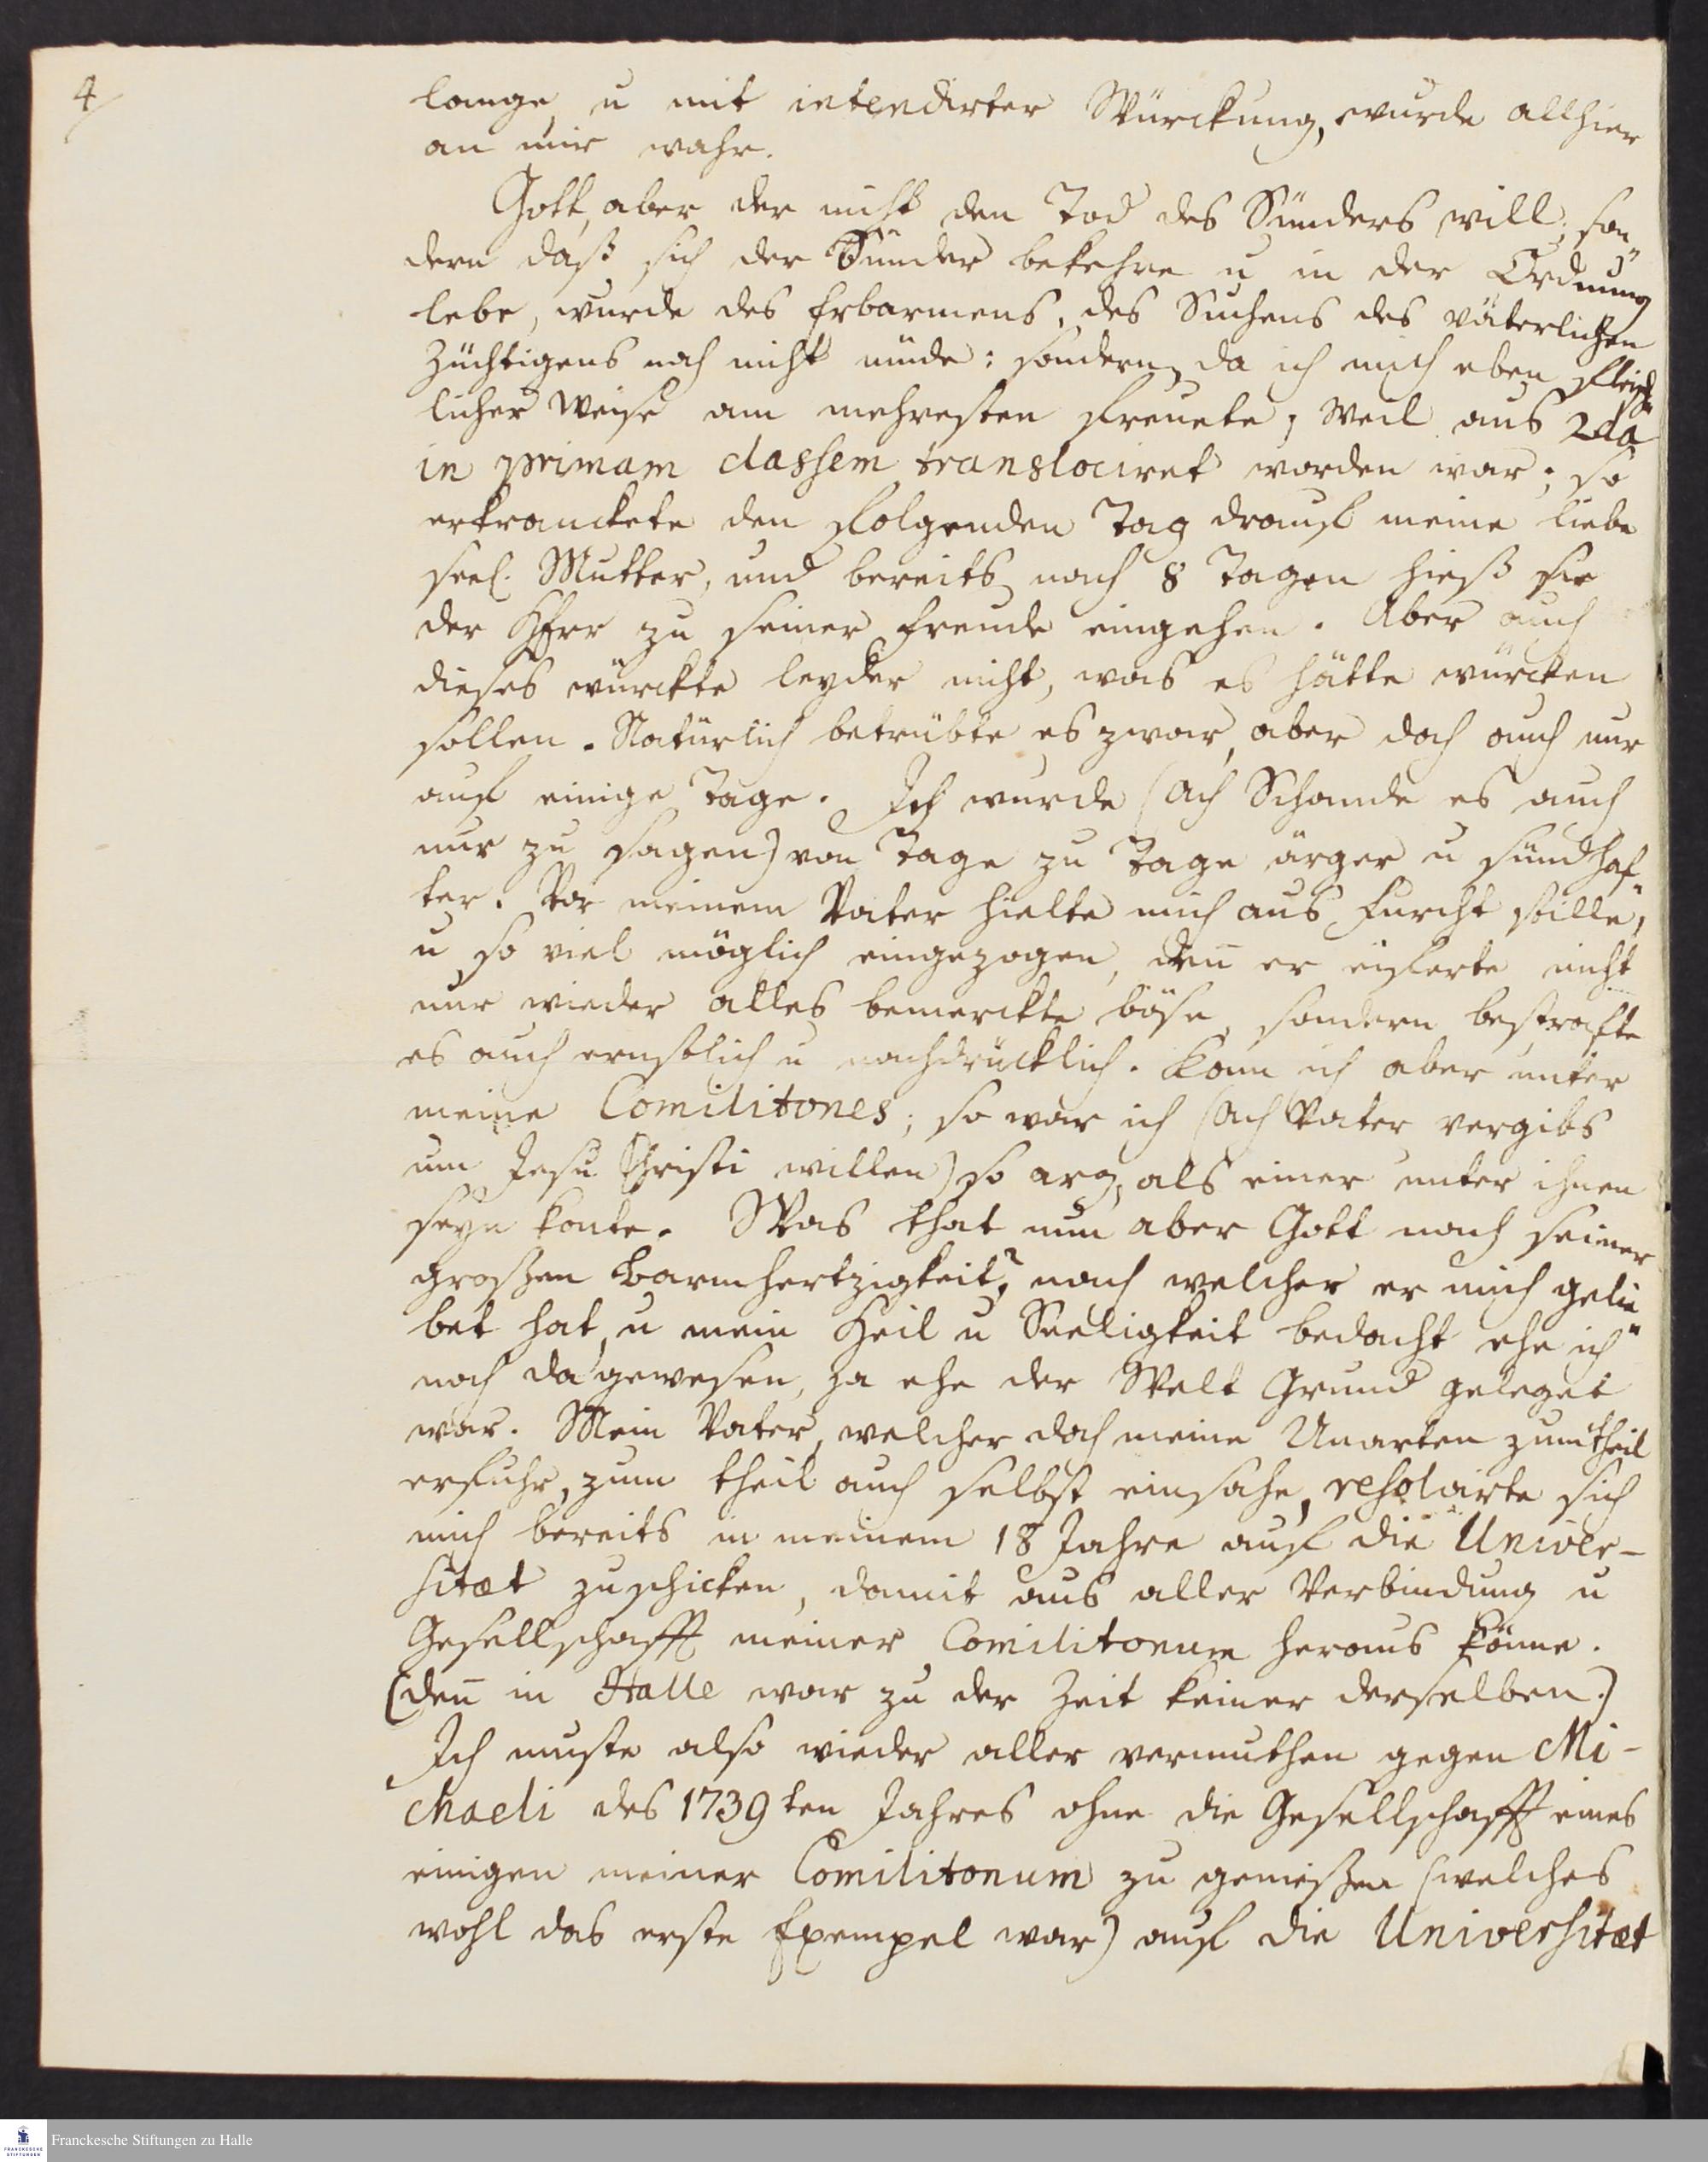 4
lange, u mit intendirter Würckung, wurde allhier
an mir wahr.
Gott, aber der nicht den Tod des Sünders will, son„
dern daß sich der Sünder bekehre u in der Ordnung
lebe, wurde des Erbarmens, des Suchens des väterlichen
Züchtigens noch nicht müde: sondern da ich mich eben fleisch„
licher Weise am mehresten freuete, weil aus 2da
in primam classem translociret worden war; so
erkranckete den folgenden Tag drauf meine liebe
seel. Mutter, und bereits nach 8 Tagen hieß sie
der HErr zu seiner Freude eingehen. Aber auch
dieses würckte leyder nicht, was es hätte würcken
sollen. Natürlich betrübte es zwar, aber doch auch nur
auf einige Tage. Ich wurde (ach Schande es auch
nur zu sagen) von Tage zu Tage ärger u sündhaf„
ter. Vor meinem Vater hielte mich aus Furcht stille,
u so viel möglich eingezogen, den̄ er eiferte nicht
nur wieder alles bemerckte böse, sondern bestrafte
es auch ernstlich u nachdrücklich. Kam ich aber unter
meine Comilitones; so war ich (ach Vater vergibs
um Jesu Christi willen) so arg, als einer unter ihnen
seyn konte. Was that nun aber Gott nach seiner
großen Barmhertzigkeit? nach welcher er mich gelie„
bet hat, u mein Heil u Seeligkeit bedacht ehe ich
noch da gewesen, ja ehe der Welt Grund geleget
war. Mein Vater, welcher doch meine Unarten zum theil
erfuhr, zum theil auch selbst einsahe, resolvirte sich
mich bereits in meinem 18 Jahre auf die Univer-
sitæt zu schicken, damit aus aller Verbindung u
Gesellschafft meiner Comilitonum heraus käme.
(den̄ in Halle war zu der Zeit keiner derselben.)
Ich muste also wieder aller vermuthen gegen Mi-
chaeli des 1739ten Jahres ohne die Gesellschafft eines
einigen meiner Comilitonum zu genießen (welches
wohl das erste Exempel war) auf die Universitæt
FRANCKESCHE
STIFTUNGEN
Franckesche Stiftungen zu Halle